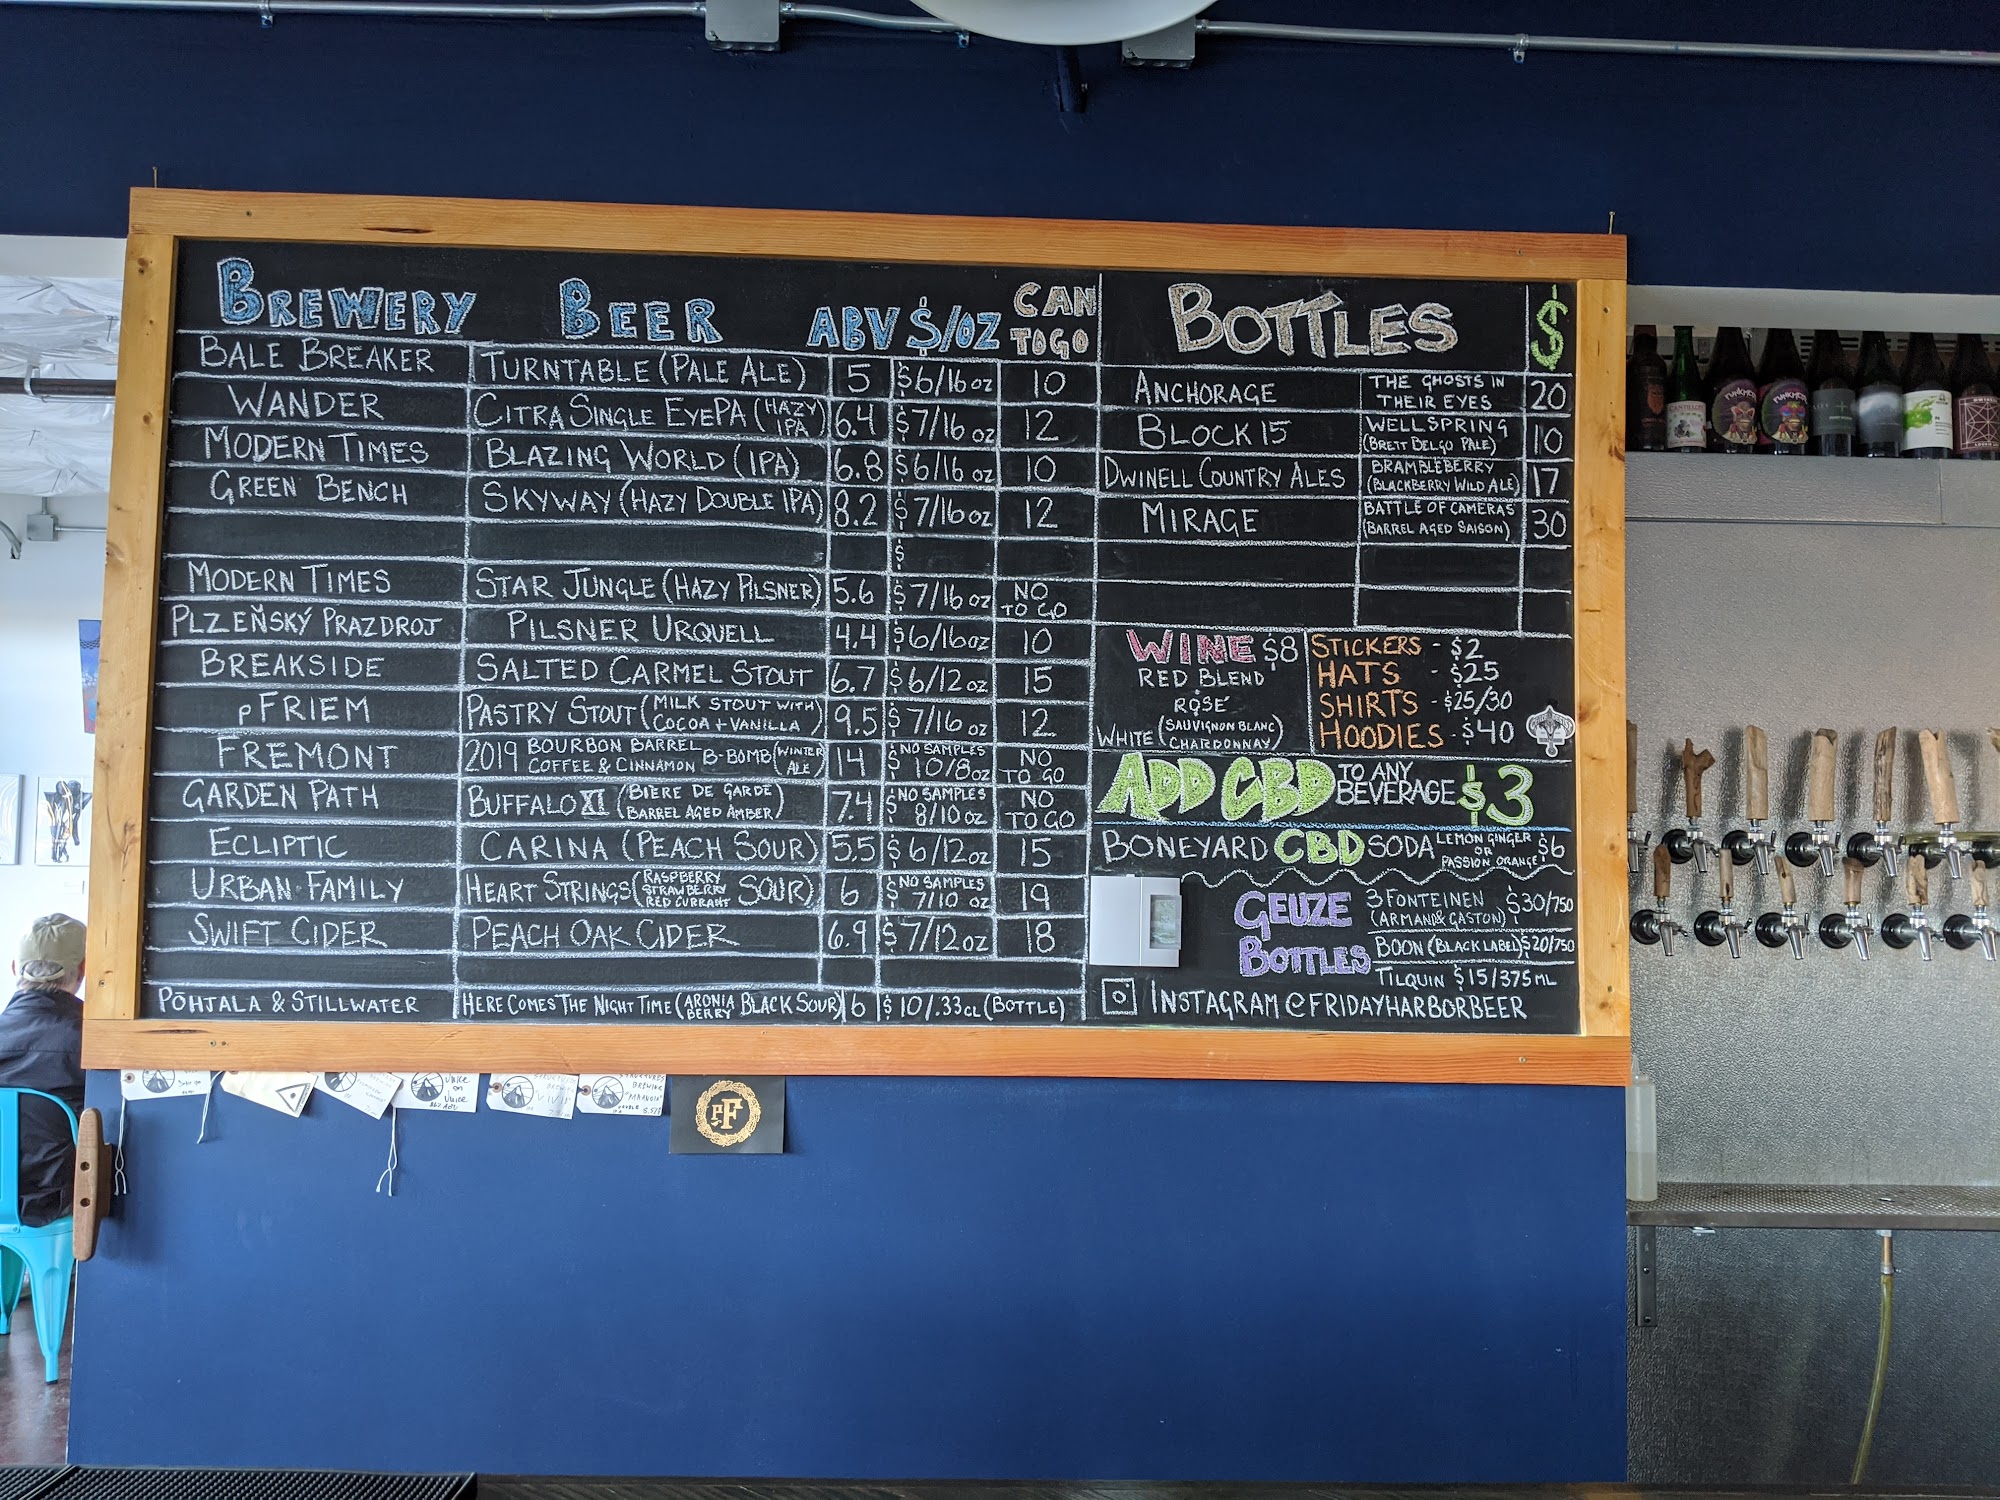 BREWERY BEER ABV $/OZ CAN TO GO
BALE BREAKER TURNTABLE (PALE ALE) 5 $6/16 OZ 10
WANDER CITRA SINGLE EYEPA (HAZY IPA) 6.4 $7/16 OZ 12
MODERN TIMES BLAZING WORLD (IPA) 6.8 $6/16 OZ 10
GREEN BENCH SKYWAY (HAZY DOUBLE IPA) 8.2 $7/16 OZ 12
$
MODERN TIMES STAR JUNGLE (HAZY PILSNER) 5.6 $7/16 OZ NO TO GO
PLZEŇSKÝ PRAZDROJ PILSNER URQUELL 4.4 $6/16 OZ 10
BREAKSIDE SALTED CARMEL STOUT 6.7 $6/12 OZ 15
pFRIEM PASTRY STOUT (MILK STOUT WITH COCOA + VANILLA) 9.5 $7/16 OZ 12
FREMONT 2019 BOURBON BARREL COFFEE & CINNAMON B-BOMB (WINTER ALE) 14 NO SAMPLES $10/8 OZ NO TO GO
GARDEN PATH BUFFALO XI (BIÈRE DE GARDE BARREL AGED AMBER) 7.4 $ NO SAMPLES 8/10 OZ NO TO GO
ECLIPTIC CARINA (PEACH SOUR) 5.5 $6/12 OZ 15
URBAN FAMILY HEART STRINGS (RASPBERRY STRAWBERRY RED CURRANT SOUR) 6 $ NO SAMPLES 7/10 OZ 19
SWIFT CIDER PEACH OAK CIDER 6.9 $7/12 OZ 18
PÕHJALA & STILLWATER HERE COMES THE NIGHT TIME (ARONIA BERRY BLACK SOUR) 6 $10/.33CL (BOTTLE)
BOTTLES $
ANCHORAGE THE GHOSTS IN THEIR EYES 20
BLOCK 15 WELLSPRING (BRETT BELGO PALE) 10
DWINELL COUNTRY ALES BRAMBLEBERRY (BLACKBERRY WILD ALE) 17
MIRAGE BATTLE OF CAMERAS (BARREL AGED SAISON) 30
WINE $8
RED BLEND
ROSÉ
WHITE (SAUVIGNON BLANC CHARDONNAY)
STICKERS - $2
HATS - $25
SHIRTS - $25/30
HOODIES - $40
ADD CBD TO ANY BEVERAGE $3
BONEYARD CBD SODA LEMON GINGER OR PASSION ORANGE $6
GEUZE BOTTLES
3 FONTEINEN (ARMAND & GASTON) $30/750
BOON (BLACK LABEL) $20/750
TILQUIN $15/375 ML
INSTAGRAM @FRIDAYHARBORBEER
PF